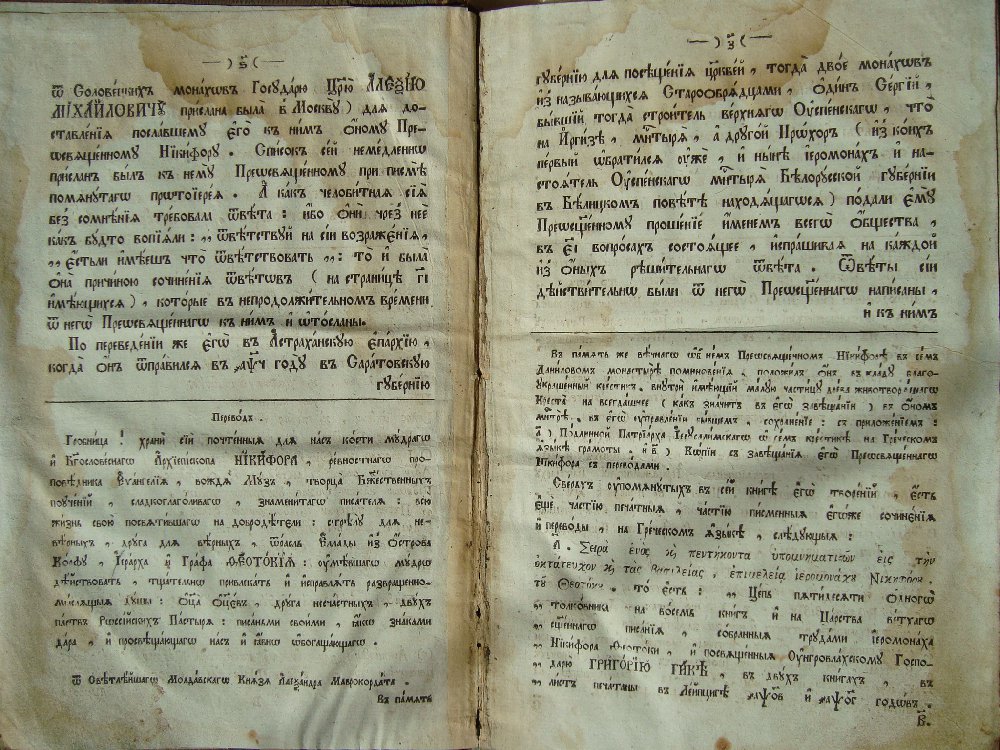 —) ѕ҃ (—
ѿ Соловецкихъ монаховъ Государю Царю АЛЕѮІЮ
МІХАЙЛОВИЧУ прислана была в Москву) для до-
ставленїя пославшему его къ нимъ оному Пре-
ѡсвященному Никифору. Списокъ сей немедленнѡ
присланъ былъ къ нему Преѡсвященному при письмѣ
помянутагѡ прѡтоїерея. А какъ челобитная сїѧ
без сомнѣнїя требовала ѿвѣта: ибо они чрез неѐ
какъ будто вопїяли: „ ѿвѣтствуй на сїи возраженїя,
„ естьли имѣешъ что ѿвѣтствовать „: то и была
она причиною сочиненїя ѿвѣтовъ (на страницѣ г҃і
имѣющихся), которые въ непродолжительномъ времени
ѿ негѡ Преѡсвященнагѡ къ нимъ и ѿтосланы.
По переведенїи же егѡ въ Астраханскую Епархїю,
когда онъ ѿправился въ ҂аѱ҃ч году въ Саратовскую
губернїю
Переводъ.
Гробница! храни сїи почтенныя для насъ кости мудрагѡ
и Бг҃ословеснагѡ Архїепископа НИКИФОРА, ревностнагѡ про-
повѣдника Евангелїя, вождя Музъ, творца Бжественныхъ
поученїй, сладкоглаголивагѡ, знаменитагѡ писателя: всю
жизнь свою посвятившагѡ на добродѣтели: сѣкиру для не-
вѣрныхъ, друга для вѣрныхъ, ѿрасль Еллады из Острова
Корфу, Іерарха и Графа ѲЕОТОКІЯ: оумѣвшагѡ мудрѡ
дѣйствовать, тщательнѡ привлекать и исправлять развращенно-
мыслящыя душы: оц҃а оц҃євъ, друга несчастныхъ, двухъ
паствъ Россїйскихъ Пастыря: писаньми своими, акѡ знаками
дара, и просвѣщающагѡ насъ и акѡ обогащающагѡ.
ѿ Свѣтлѣйшагѡ Молдавскагѡ Князя Алеѯандра Маврокордата.
Въ память
—) з҃ (—
губернїю для посѣщенїя цр҃квей, тогда двое монаховъ
из называющихся Старообрядцами, одинъ Сергїй,
бывшїй тогда строитель верхнягѡ Оуспенскагѡ, что
на Иргизѣ, мн҃тыря, а другой Прохоръ (из коихъ
первый ѡбратился оуже, и нынѣ їеромонахъ и на-
стоятель Оуспенскагѡ мн҃тыря Бѣлорусской губернїи
въ Бѣлицкомъ повѣтѣ находящагося) подали ему
Преѡсщ҃енному прошенїе именемъ всегѡ общества,
въ е҃і вопросахъ состоящее, испрашивая на каждой
из оныхъ рѣшительнагѡ ѿвѣта. Ѿвѣты сїи
дѣйствительнѡ были ѿ негѡ Преѡсщ҃еннагѡ написаны,
и къ нимъ
Въ память же вѣчнагѡ ѡ немъ Преѡсвященномъ Никифорѣ въ семъ
Даниловомъ монастырѣ поминовенїя, положилъ онъ въ кладу благо-
украшенный крестикъ внутри имѣющїй малую частицу древа животворящагѡ
Креста на всегдашнее (какъ значитъ въ егѡ завѣщанїи) въ ономъ
мн҃трѣ, въ егѡ оуправленїи бывшемъ, сохраненїе: съ приложенїемъ:
а҃) Подлинной Патрїарха Іерусалимскагѡ о семъ крестикѣ на Греческомъ
языкѣ грамоты, и в҃) Копїи съ завѣщанїя егѡ Преѡсвященнагѡ
Никифора съ переводами.
Сверьхъ оупомянутыхъ въ сей книгѣ егѡ творенїй, есть
еще частїю печатныя, частїю писменныя егѡже сочиненїя
и переводы, на Греческомъ языкѣ, слѣдующыя:
А҃. Σειρὰ ἑνὸς καὶ πεντήκοντα ὑπομνηματιῶν εἰς τὴν
ὀκτάτευχον καὶ τὰς Βασιλείας, ἐπιμελείᾳ ἱερομονάχου Νικηφόρου
τοῦ Θεοτόκη. то есть: „ Цѣпь пятидесяти одногѡ
„ толковника на восемь книгъ и на Царства ветхагѡ
„ священнагѡ писанїя, собранныя трудами їеромонаха
„ Никифора Ѳеотоки, и посвященныя Оунгровлахскому Госпо-
„ дарю ГРИГОРІЮ ГИКѢ, въ двухъ книгахъ, въ
„ листъ печатаны въ Лейпцигѣ ҂аѱ҃ов и ҂аѱ҃ог годѡвъ.
В҃.